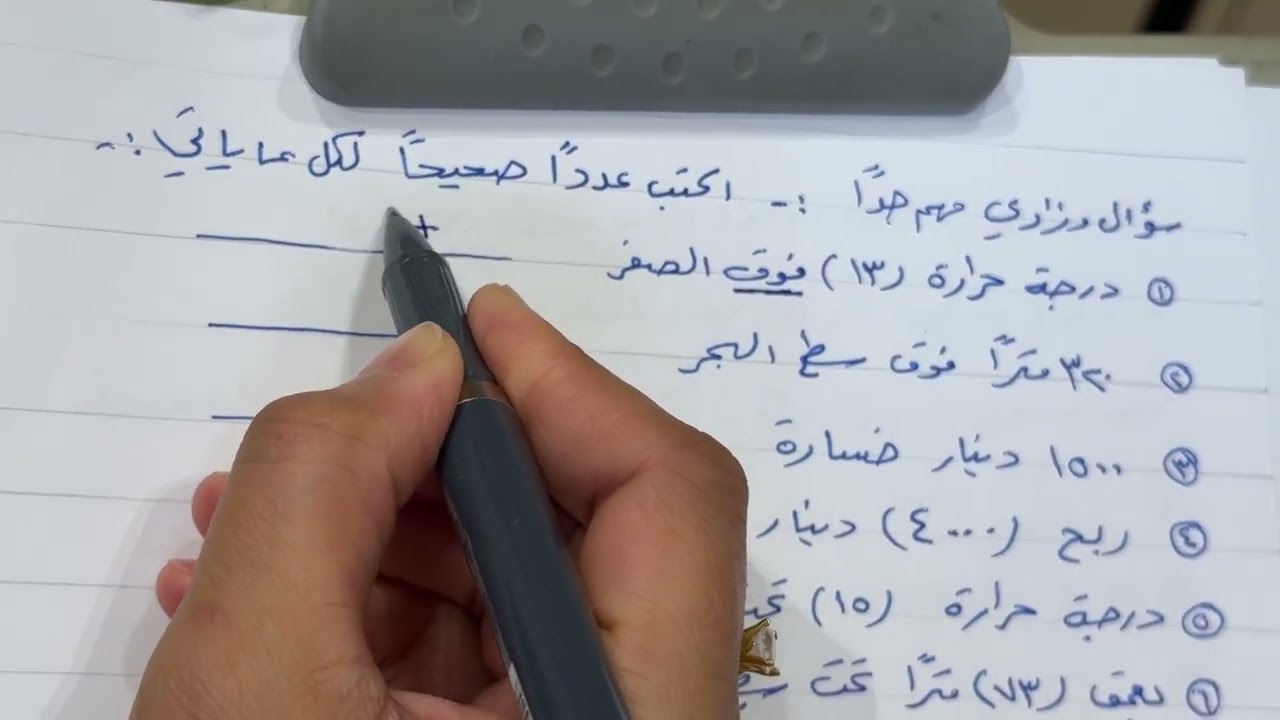 سؤال وزاري مهم جداً :- اكتب عدداً صحيحاً لكل مما يأتي :-
① درجة حرارة (١٣) فوق الصفر +
② ٣٢٠ متراً فوق سطح البحر
③ ١٥٠٠ دينار خسارة
④ ربح (٤٠٠٠) دينار
⑤ درجة حرارة (١٥)
⑥ بعمق (٧٣) متراً تحت